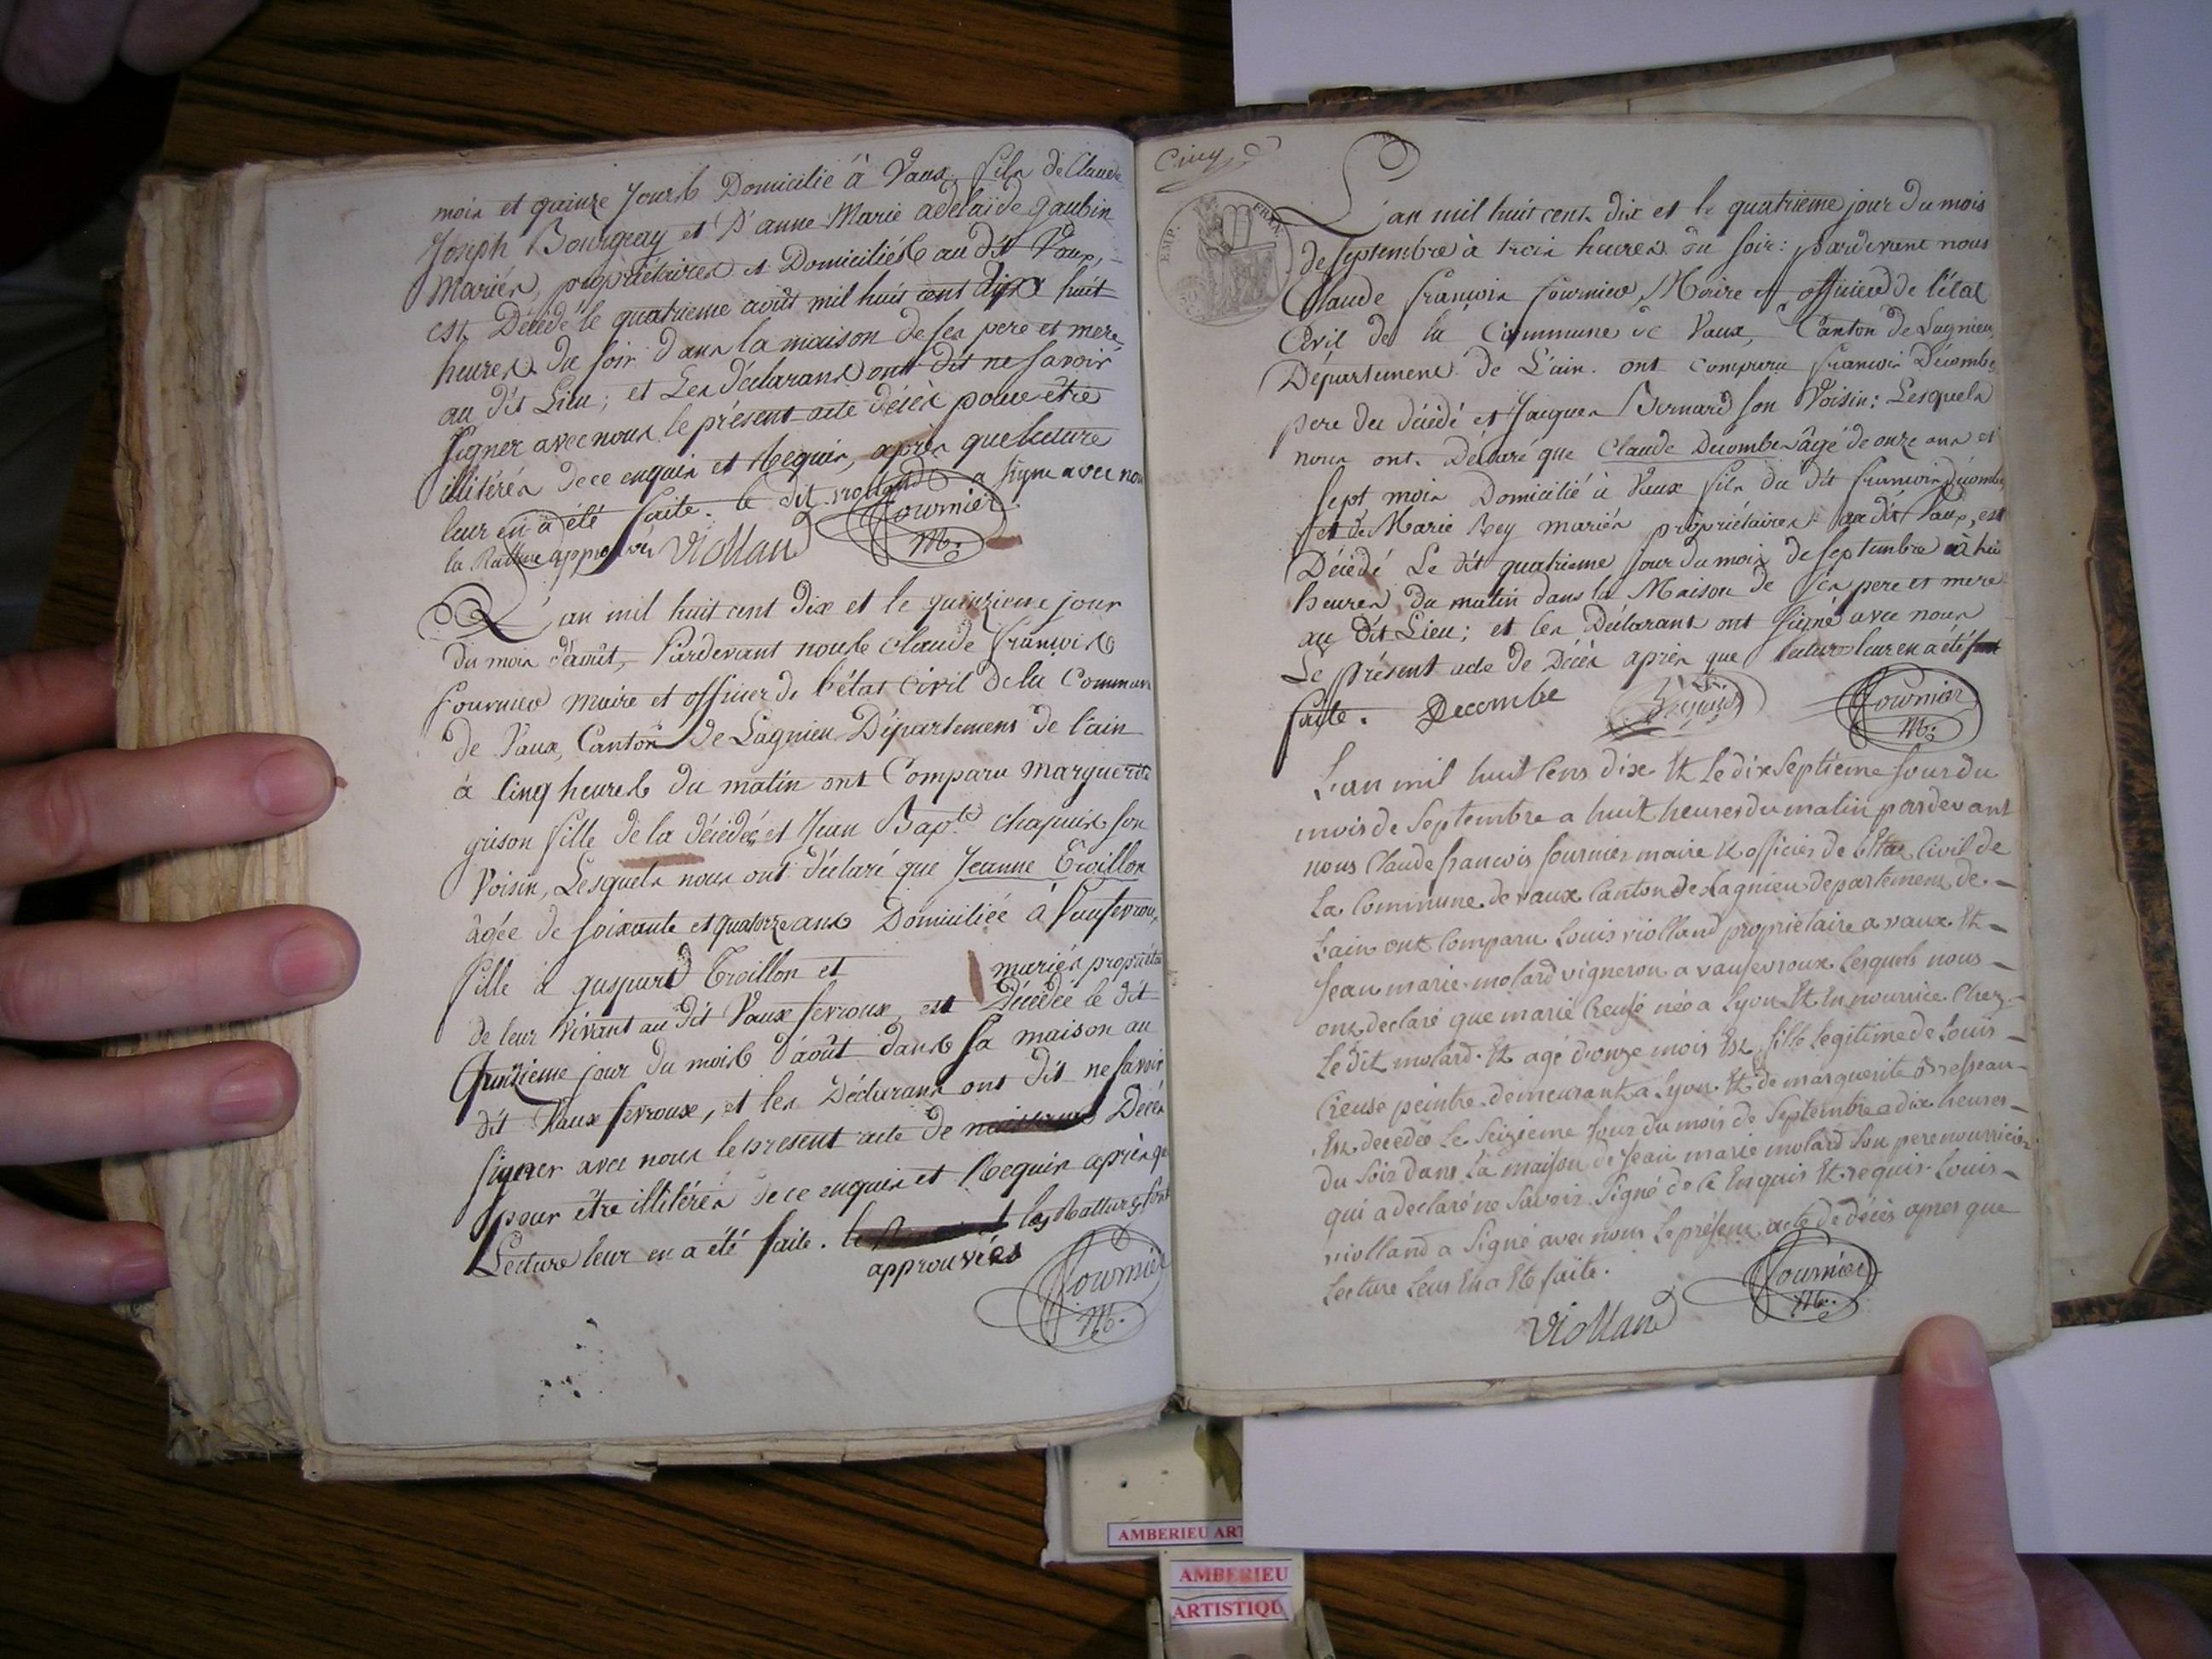 mois et quinze jours Domicilié à Vaux, fils de Claude
Joseph Bourgeay et D'anne Marie adelaïde gaubin
Mariés, propriétaires et Domiciliés au dit Vaux,
est Décédé le quatrieme août mil huit cent dix à huit
heures du soir dans la maison de ses pere et mere
au dit Lieu; et Les déclarans ont dit ne savoir
signer avec nous le présent acte décès pour être
illitérés de ce enquis et Requis, après que lecture
leur en a été faite. le dit violland a signé avec nous
la Rature approuvée violland Fournier
M.
L'an mil huit cent dix et le quinzieme jour
du mois d'août, Pardevant nous Claude françois
fournier maire et officier de l'état civil de la Commune
de Vaux, Canton de Lagnieu Département de l'ain
à Cinq heures du matin ont Comparu marguerite
grison fille de la décédée et Jean Bapte. chapuis son
Voisin, Lesquels nous ont déclaré que Jeanne Troillon
âgée de soixante et quatorze ans Domiciliée à Vaufevroux,
fille à gaspard Troillon et mariés propriétai
de leur vivant au dit Vaux fevroux, est Décédée le dit
Quinzieme jour du mois d'août dans sa maison au
dit Vaux fevroux, et les Déclarans ont dit ne savoir
signer avec nous le present acte de Décès
pour être illitérés de ce enquis et Requis après que
Lecture leur en a été faite. les Ratures sont
approuvées
Fournier
M.
Cinq
EMP. FRAN.
L'an mil huit cent dix et le quatrieme jour du mois
de septembre à trois heures du soir: pardevant nous
Claude françois fournier, Maire et officier de l'état
Civil de la Commune de Vaux, Canton de Lagnieu,
Département de L'ain. ont comparu françois Décombe
pere du décédé et Jacques Bernard son Voisin: Lesquels
nous ont Déclaré que Claude Decombe âgé de onze ans et
sept mois Domicilié à Vaux fils du dit françois Décombe
et de Marie Rey mariés propriétaires au dit Vaux, est
Décédé Le dit quatrieme jour du mois de septembre à hui
heures du matin dans la Maison de ses pere et mere
au dit Lieu; et les Déclarans ont signé avec nous
Le Présent acte de Décès après que lecture leur en a été
faite. Decombe Fournier
M.
L'an mil huit Cens dix Et Le dix Septieme Jour du
mois de Septembre a huit heures du matin pardevant
nous Claude francois fournier maire Et officier de L'Etat Civil de
La Commune de vaux Canton de Lagnieu departement de
L'ain ont Comparu Louis violland propriétaire a vaux Et
Jean marie molard vigneron a vaufevroux Lesquels nous
ont declaré que marie Creuse née a Lyon Et En nourrice Chez
Le dit molard Et agé d'onze mois Est fille legitime de Louis
Creuse peintre demeurant a Lyon Et de marguerite
Est decedée Le Seizieme Jour du mois de Septembre a dix heures
du Soir dans La maison de Jean marie molard Son pere nourricier
qui a declaré ne Savoir Signé de Ce Enquis Et requis Louis
violland a Signé avec nous Le présent acte de décès apres que
Lecture Leur En a Eté faite.
violland Fournier
M.
AMBERIEU ART
AMBERIEU
ARTISTIQU